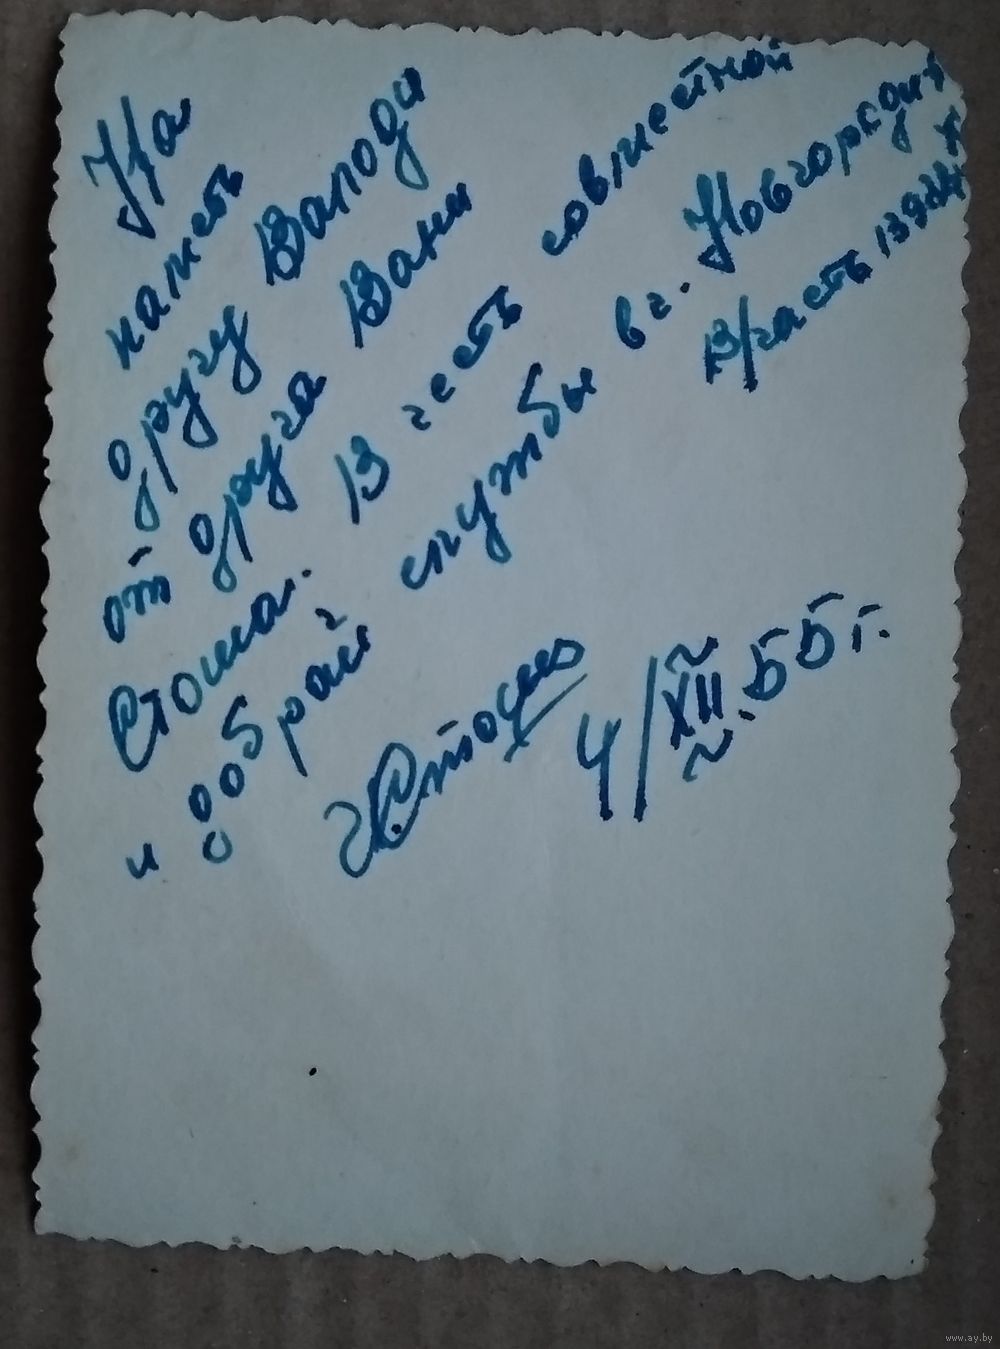 На
память
другу Валоди
от друга Вани
Стома. В честь совместной
и доброй службы в г. Новгород
В/часть
Стома
4/XII.55г.
www.ay.by